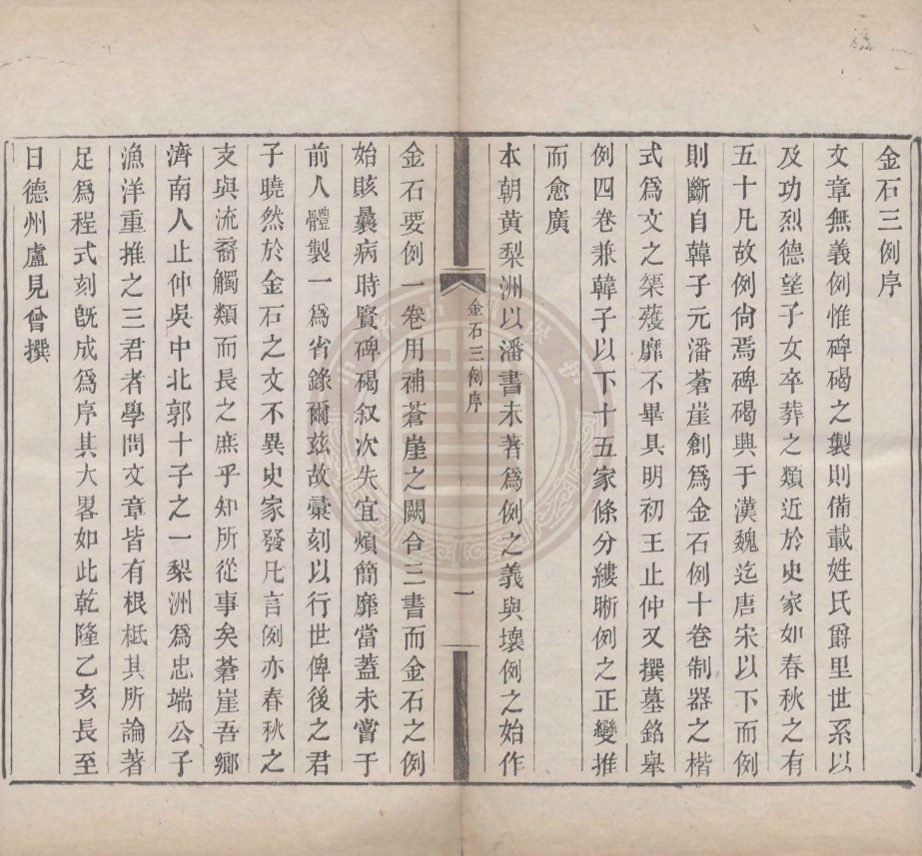 金石三例序
文章無義例惟碑碣之製則備載姓氏爵里世系以
及功烈德望子女卒葬之類近於史家如春秋之有
五十凡故例尙焉碑碣興于漢魏迄唐宋以下而例
則斷自韓子元潘蒼崖創爲金石例十卷制器之楷
式爲文之榘蒦靡不畢具明初王止仲又撰墓銘舉
例四卷兼韓子以下十五家條分縷晰例之正變推
而愈廣
本朝黄梨洲以潘書未著爲例之義與壞例之始作
金石三例序
一
金石要例一卷用補蒼崖之闕合三書而金石之例
始賅曩病時賢碑碣叙次失宜煩簡靡當蓋未嘗于
前人體製一爲省錄爾玆故彙刻以行世俾後之君
子曉然於金石之文不異史家發凡言例亦春秋之
支與流裔觸類而長之庶乎知所從事矣蒼崖吾鄉
濟南人止仲吳中北郭十子之一梨洲爲忠端公子
漁洋重推之三君者學問文章皆有根柢其所論著
足爲程式刻旣成爲序其大畧如此乾隆乙亥長至
日德州盧見曾撰